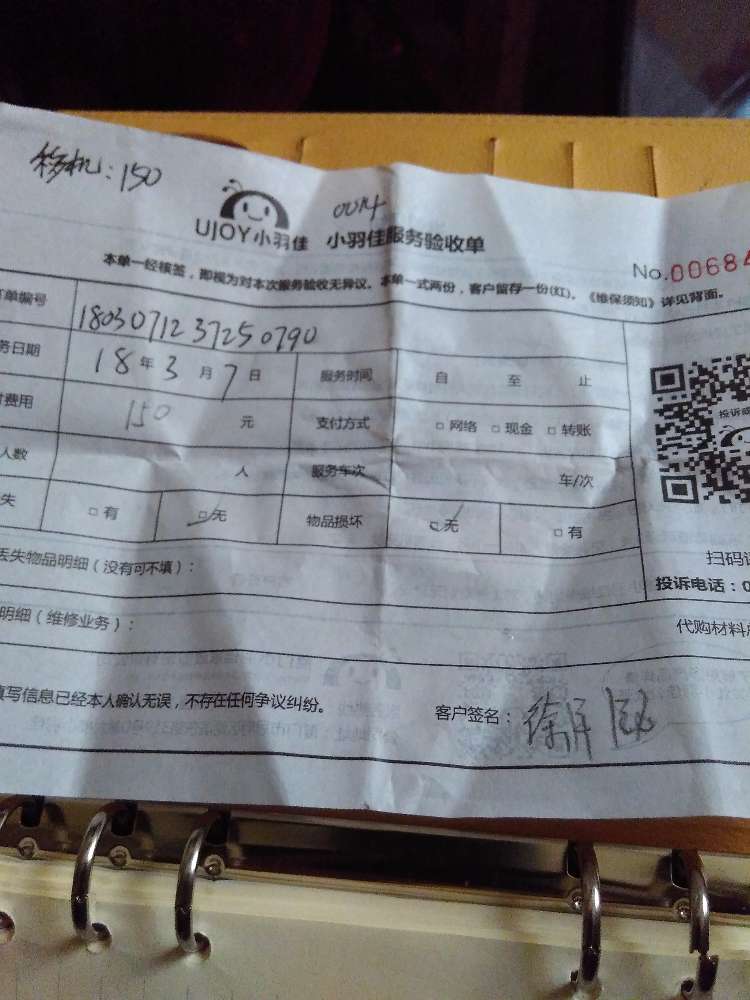 移机：150
UJOY小羽佳 0014
小羽佳服务验收单
No.00684
本单一经核签，即视为对本次服务验收无异议。本单一式两份，客户留存一份(红)。《维保须知》详见背面。
单编号 1803071237250790
务日期 18年3月7日 服务时间 自 至 止
费用 150 元 支付方式 □网络 □现金 □转账
人数 人 服务车次 车/次
失 □有 □无 物品损坏 □无 □有
投诉
扫码
丢失物品明细（没有可不填）：
投诉电话：0
明细（维修业务）：
代购材料
填写信息已经本人确认无误，不存在任何争议纠纷。
客户签名：徐屏